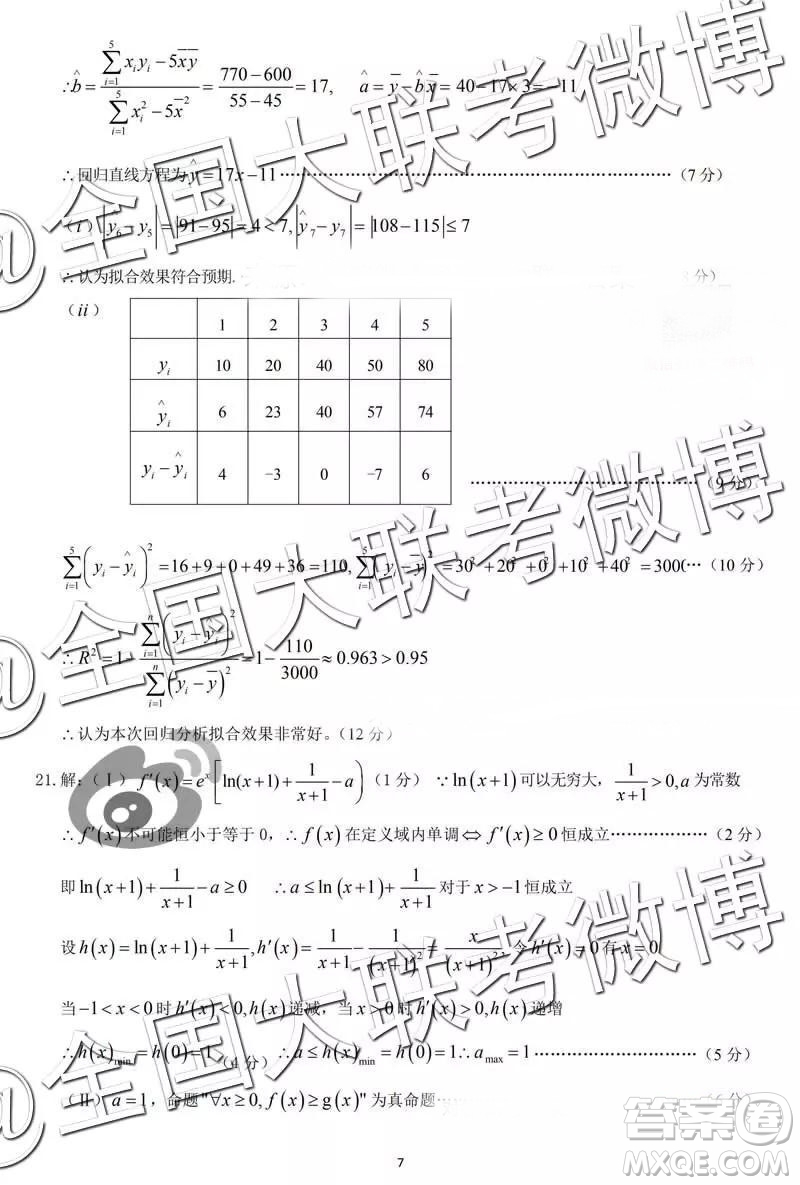 ∴ b̂ = (∑_{i=1}^{5} x_i y_i − 5x̄ȳ) / (∑_{i=1}^{5} x_i² − 5x̄²) = (770−600)/(55−45) = 17, â = ȳ − b̂x̄ = 40−17×3 = −11
∴回归直线方程为 ŷ=17x−11 ……………………（7 分）
（i）|y₆−y₅|=|91−95|=4<7,|ŷ₇−y₇|=|108−115|≤7
∴认为拟合效果符合预期. 分）
（ii）
1 2 3 4 5
y_i 10 20 40 50 80
ŷ_i 6 23 40 57 74
y_i−ŷ_i 4 −3 0 −7 6
……………………（9 分）
∑_{i=1}^{5}(y_i−ŷ_i)²=16+9+0+49+36=110,∑_{i=1}^{5}(y_i−ȳ)²=30²+20²+0²+10²+40²=3000…（10 分）
∴R²=1-∑_{i=1}^{n}(y_i−ŷ_i)²/∑_{i=1}^{n}(y_i−ȳ)²=1−110/3000≈0.963>0.95
∴认为本次回归分析拟合效果非常好。（12 分）
21.解:（Ⅰ）f′(x)=e^x[ln(x+1)+1/(x+1)−a)（1 分） ∵ln(x+1)可以无穷大，1/(x+1)>0,a 为常数
∴f′(x)不可能恒小于等于 0，∴f(x)在定义域内单调⇔f′(x)≥0恒成立………………（2 分）
即ln(x+1)+1/(x+1)−a≥0 ∴a≤ln(x+1)+1/(x+1)对于x>−1恒成立
设h(x)=ln(x+1)+1/(x+1),h′(x)=1/(x+1)−1/(x+1)²=x/(x+1)²，令h′(x)=0有x=0
当−1<x<0时h′(x)<0,h(x)递减，当x>0时h′(x)>0,h(x)递增
∴h(x)_min=h(0)=1（4 分） ∴a≤h(x)_min=h(0)=1∴a_max=1……………………（5 分）
（II）a=1，命题"∀x≥0,f(x)≥g(x)"为真命题…… 分
7
@全国大联考微博
@全国大联考微博
@全国大联考微博
答案圈
MXQE.COM